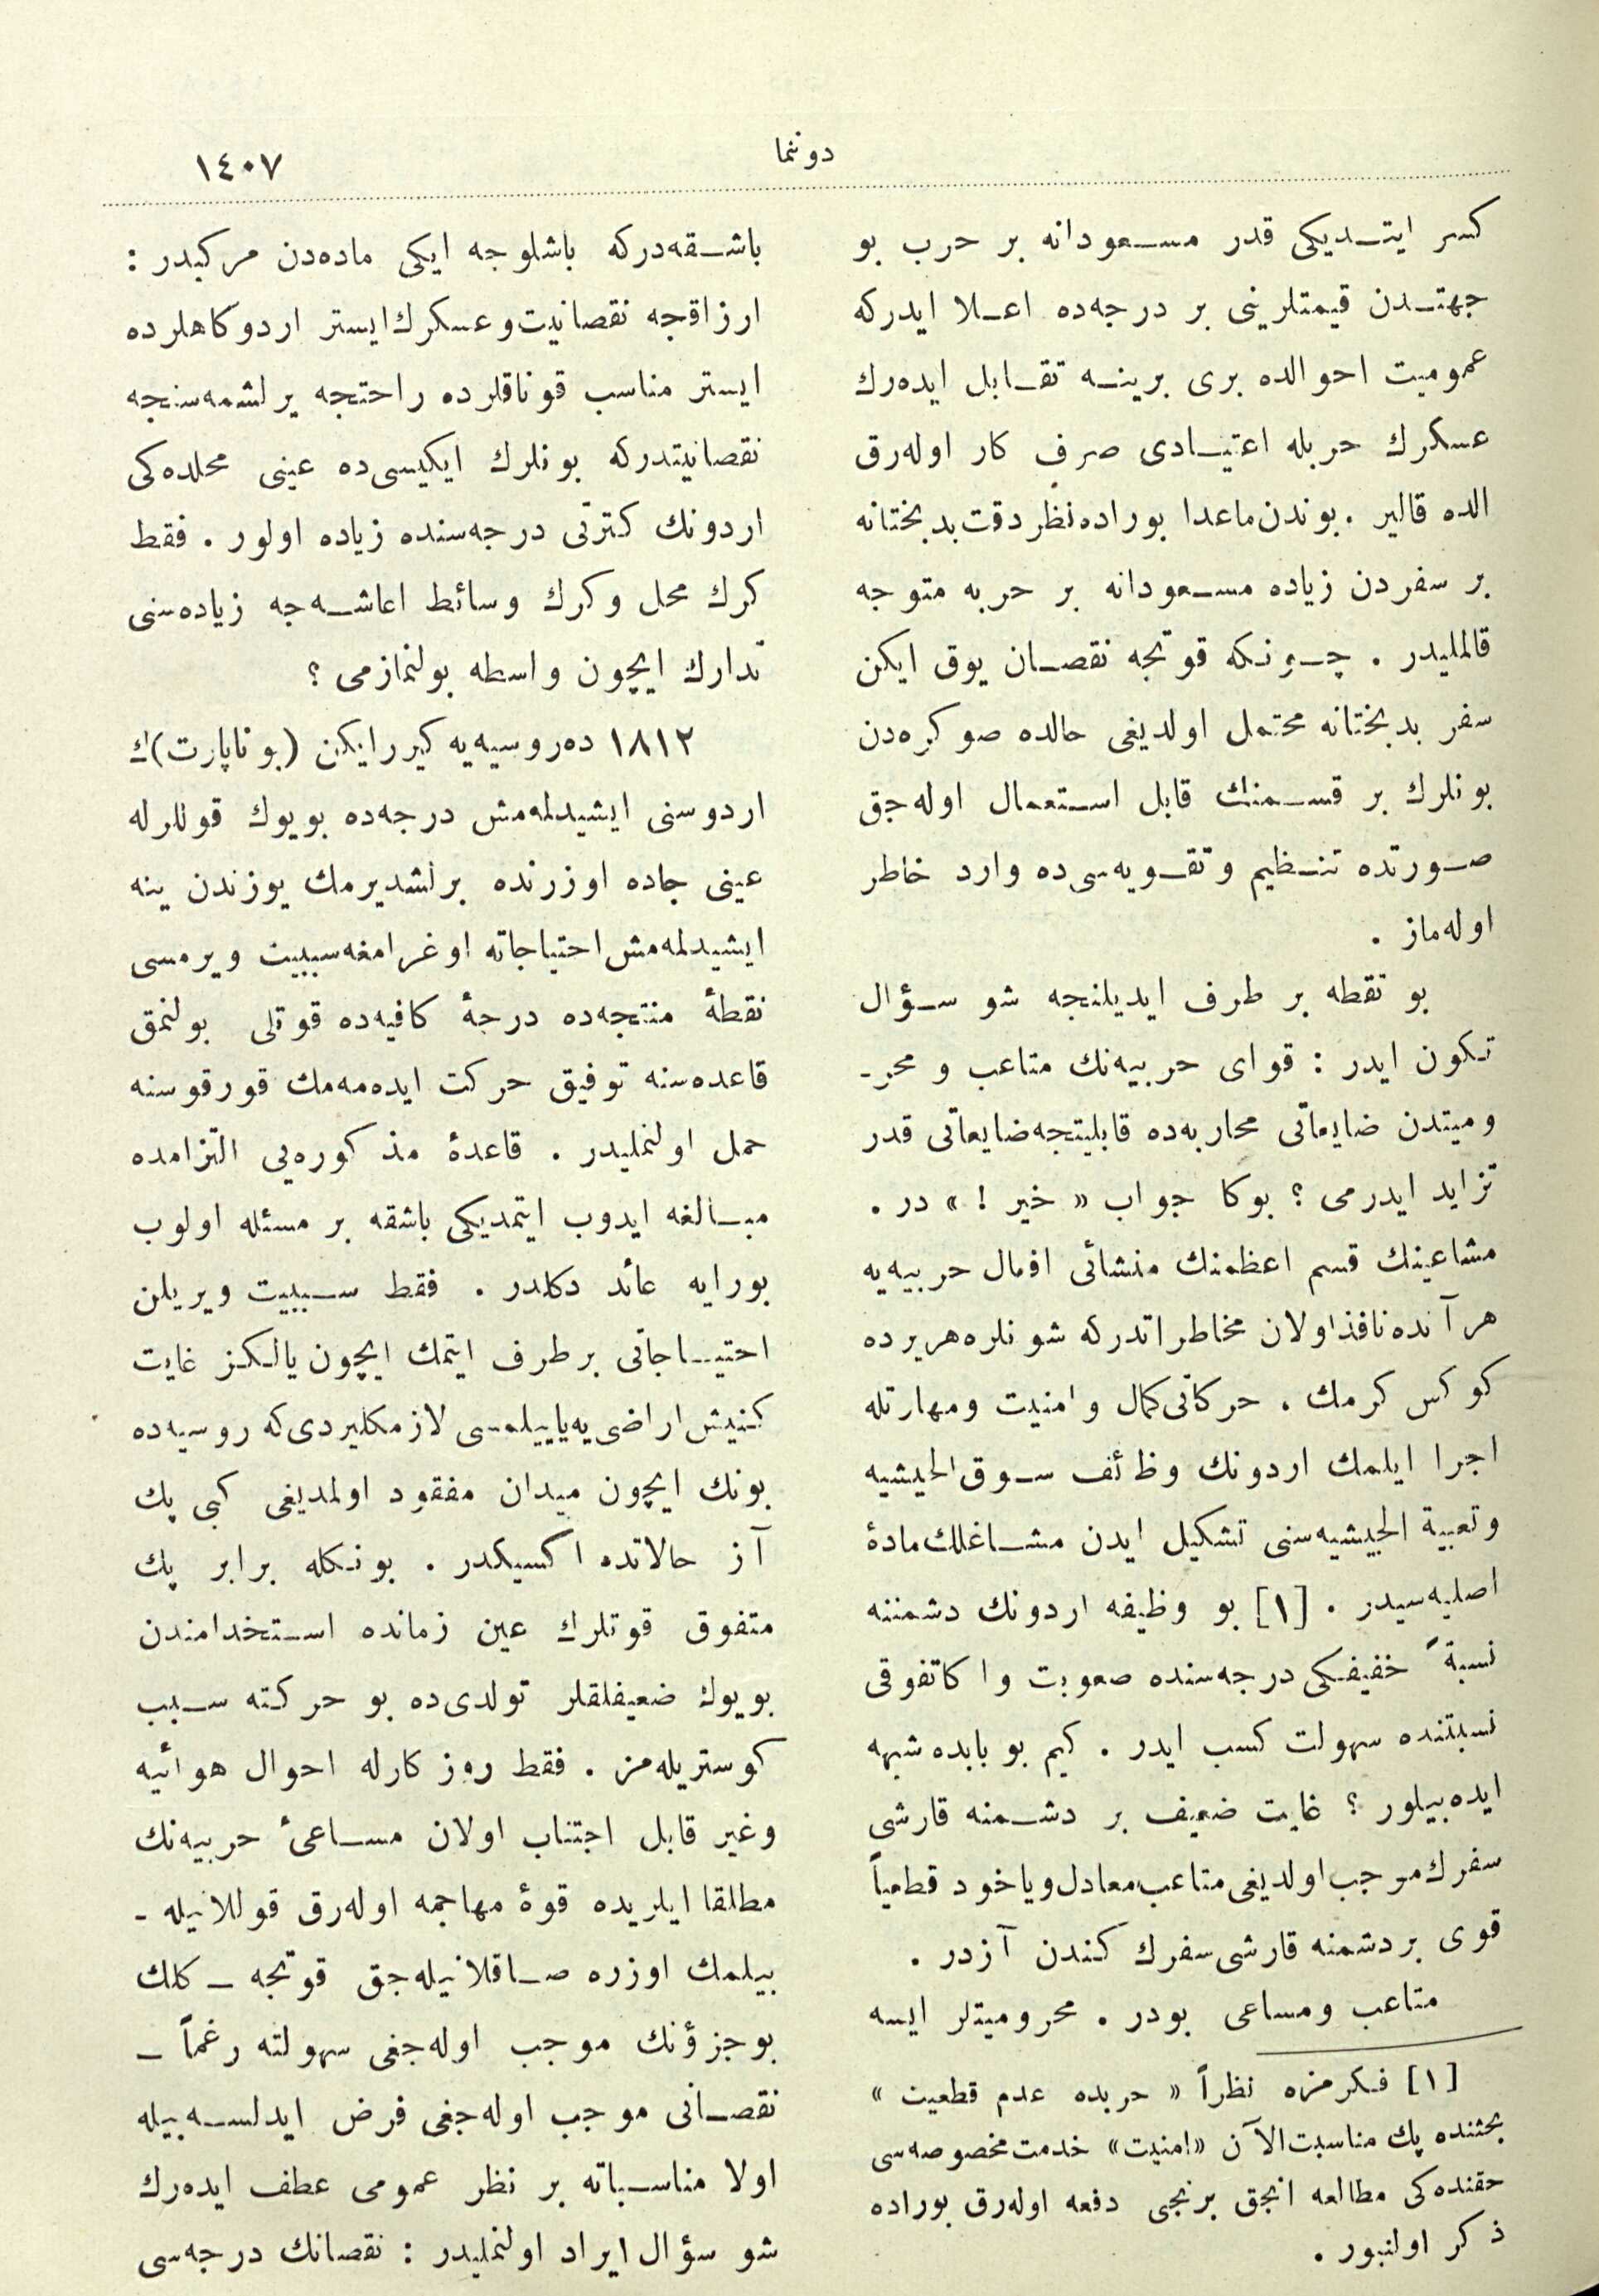 دوننما
١٤٠٧
كسر ايتديكى قدر مسعودانه بر حرب بو
جهتدن قيمتلرينى بر درجه‌ده اعلا ايدركه
عموميت احوالده برى برينه تقابل ايده‌رك
عسكرك حربله اعتيادى صرف كار اوله‌رق
الده قالير . بوندن ماعدا بوراده نظر دقت بدبختانه
بر سفردن زياده مسعودانه بر حربه متوجه
قالمليدر . چونكه قوتجه نقصان يوق ايكن
سفر بدبختانه محتمل اولديغى حالده صوكره‌دن
بونلرك بر قسمنك قابل استعمال اوله‌جق
صورتده تنظيم و تقويه‌سى ده وارد خاطر
اوله‌ماز .
بو نقطه بر طرف ايديلنجه شو سؤال
تكون ايدر : قواى حربيه‌نك متاعب و محر-
وميتدن ضايعاتى محاربه‌ده قابليتجه ضايعاتى قدر
تزايد ايدرمى ؟ بوكا جواب « خير ! » در .
مشاعينك قسم اعظمنك منشائى افعال حربيه‌يه
هر آنده نافذ اولان مخاطراتدركه شونلره هر يرده
كوكس كرمك . حركاتى كمال و امنيت و مهارتله
اجرا ايلمك اردونك وظائف سوق الجيشيه
و تعبية الجيشيه‌سنى تشكيل ايدن مشاغلك مادۀ
اصليه‌سيدر . [١] بو وظيفه اردونك دشمننه
نسبةً خفيفكى درجه‌سنده صعوبت و اكا تفوقى
نسبتنده سهولت كسب ايدر . كيم بو بابده شبهه
ايده‌بيلور ؟ غايت ضعيف بر دشمنه قارشى
سفرك موجب اولديغى متاعب معادل وياخود قطعياً
قوى بر دشمنه قارشى سفرك كندن آزدر .
متاعب و مساعى بودر . محروميتلر ايسه
[١] فكرمزه نظراً « حربده عدم قطعيت »
بحثنده پك مناسبت آلان «امنيت» خدمت مخصوصه‌سى
حقنده‌كى مطالعه انجق برنجى دفعه اوله‌رق بوراده
ذكر اولنيور .
باشقه‌دركه باشلوجه ايكى ماده‌دن مركبدر :
ارزاقجه نقصانيت و عسكرك ايستر اردوكاهلرده
ايستر مناسب قوناقلرده راحتجه يرلشمه‌سنجه
نقصانيتدركه بونلرك ايكيسى ده عينى محلده‌كى
اردونك كثرتى درجه‌سنده زياده اولور . فقط
كرك محل و كرك وسائط اعاشه‌جه زياده‌سنى
تدارك ايچون واسطه بولنمازمى ؟
١٨١٢ ده روسيه‌يه كيررايكن (بوناپارت)ك
اردوسنى ايشيدلمه‌مش درجه‌ده بويوك قوللرله
عينى جاده اوزرنده برلشديرمك يوزندن ينه
ايشيدلمه‌مش احتياجاته اوغرامغه سببيت ويرمسى
نقطۀ منتجه‌ده درجۀ كافيه‌ده قوتلى بولنمق
قاعده‌سنه توفيق حركت ايده‌مه‌مك قورقوسنه
حمل اولنمليدر . قاعدۀ مذكوره‌يى التزامده
مبالغه ايدوب ايتمديكى باشقه بر مسئله اولوب
بورايه عائد دكلدر . فقط سببيت ويريلن
احتياجاتى بر طرف ايتمك ايچون يالكز غايت
كنيش اراضى‌يه ياييلمسى لازمكليردى كه روسيه‌ده
بونك ايچون ميدان مفقود اولمديغى كبى پك
آز حالاتده اكسيكدر . بونكله برابر پك
متفوق قوتلرك عين زمانده استخدامندن
بويوك ضعيفلقلر تولدى ده بو حركته سبب
كوستريله‌مز . فقط روزكارله احوال هوائيه
و غير قابل اجتناب اولان مساعىٔ حربيه‌نك
مطلقا ايلريده قوۀ مهاجمه اوله‌رق قوللانيله -
بيلمك اوزره صاقلانيله‌جق قوتجه ــ كلك
بو جزؤنك موجب اوله‌جغى سهولته رغماً ــ
نقصانى موجب اوله‌جغى فرض ايدلسه‌بيله
اولا مناسباته بر نظر عمومى عطف ايده‌رك
شو سؤال ايراد اولنمليدر : نقصانك درجه‌سى